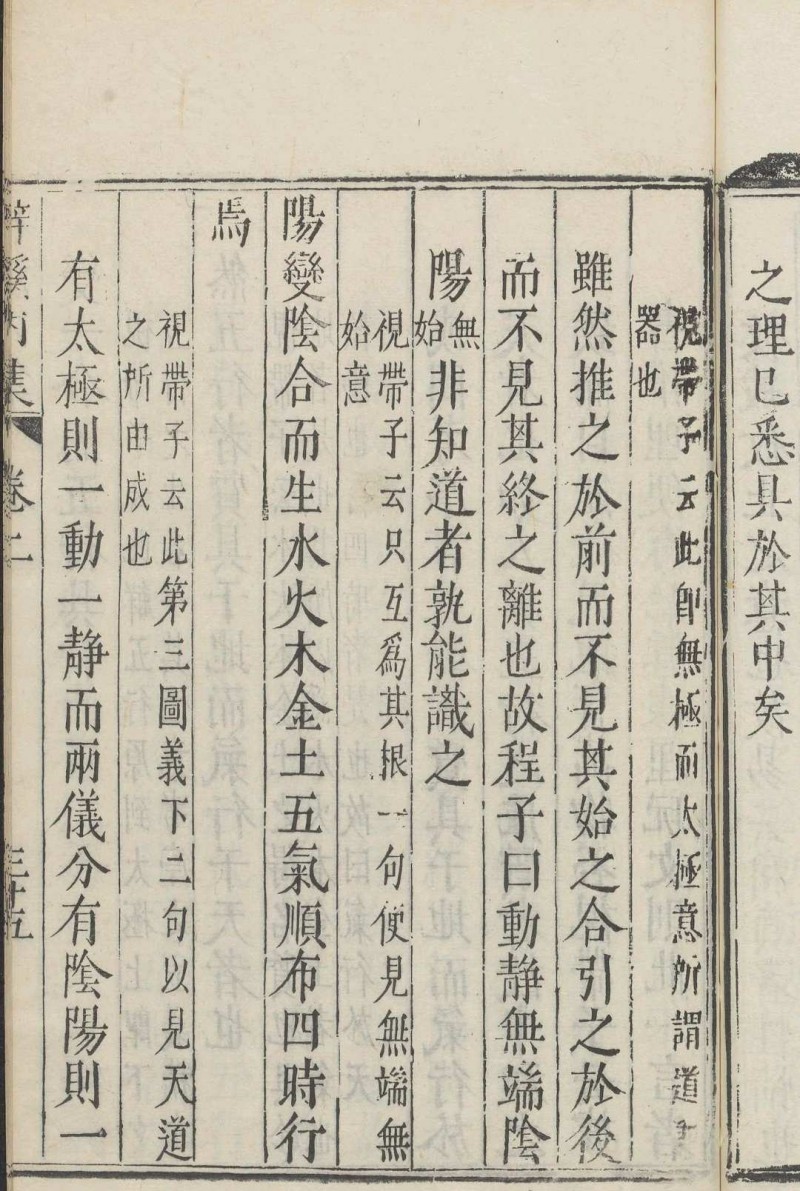 之理已悉具於其中矣
視帶子云此卽無極而太極意所謂道
器也
雖然推之於前而不見其始之合引之於後
而不見其終之離也故程子曰動靜無端陰
陽無始非知道者孰能識之
視帶子云只互爲其根一句便見無端無
始意
陽變陰合而生水火木金土五氣順布四時行
焉
視帶子云此第三圖義下二句以見天道
之所由成也
有太極則一動一靜而兩儀分有陰陽則一
集 卷二 三十五